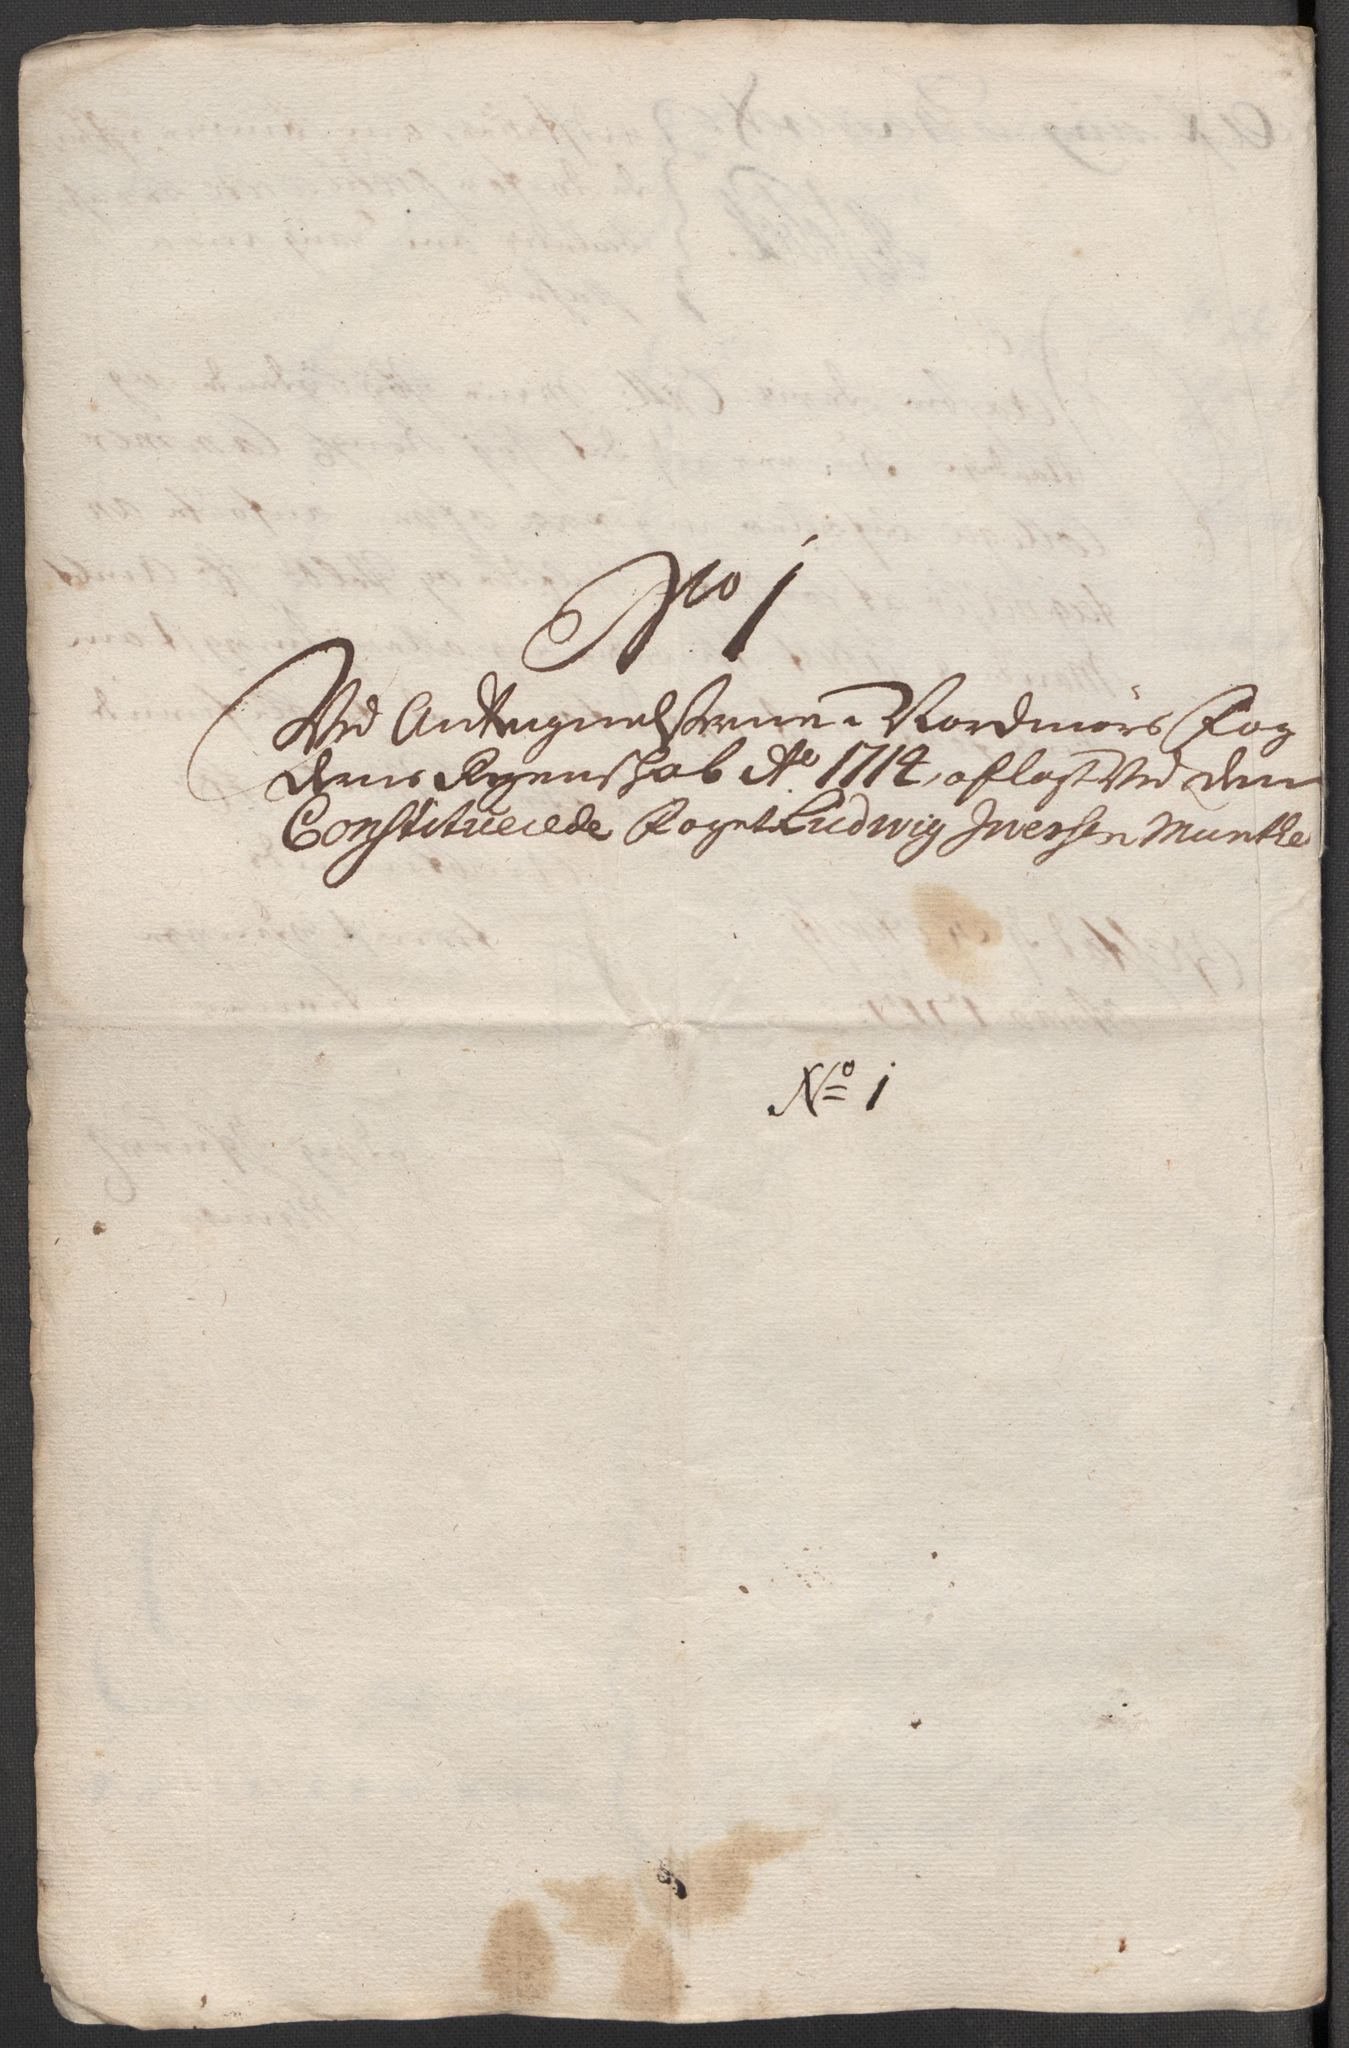 No 1
Ved Antegnelserne i Nordmørs Fog
deris Regenskab Ao 1714, aflagt Ved den
Constituerede Foget Ludwig Iversen Munthe
No 1